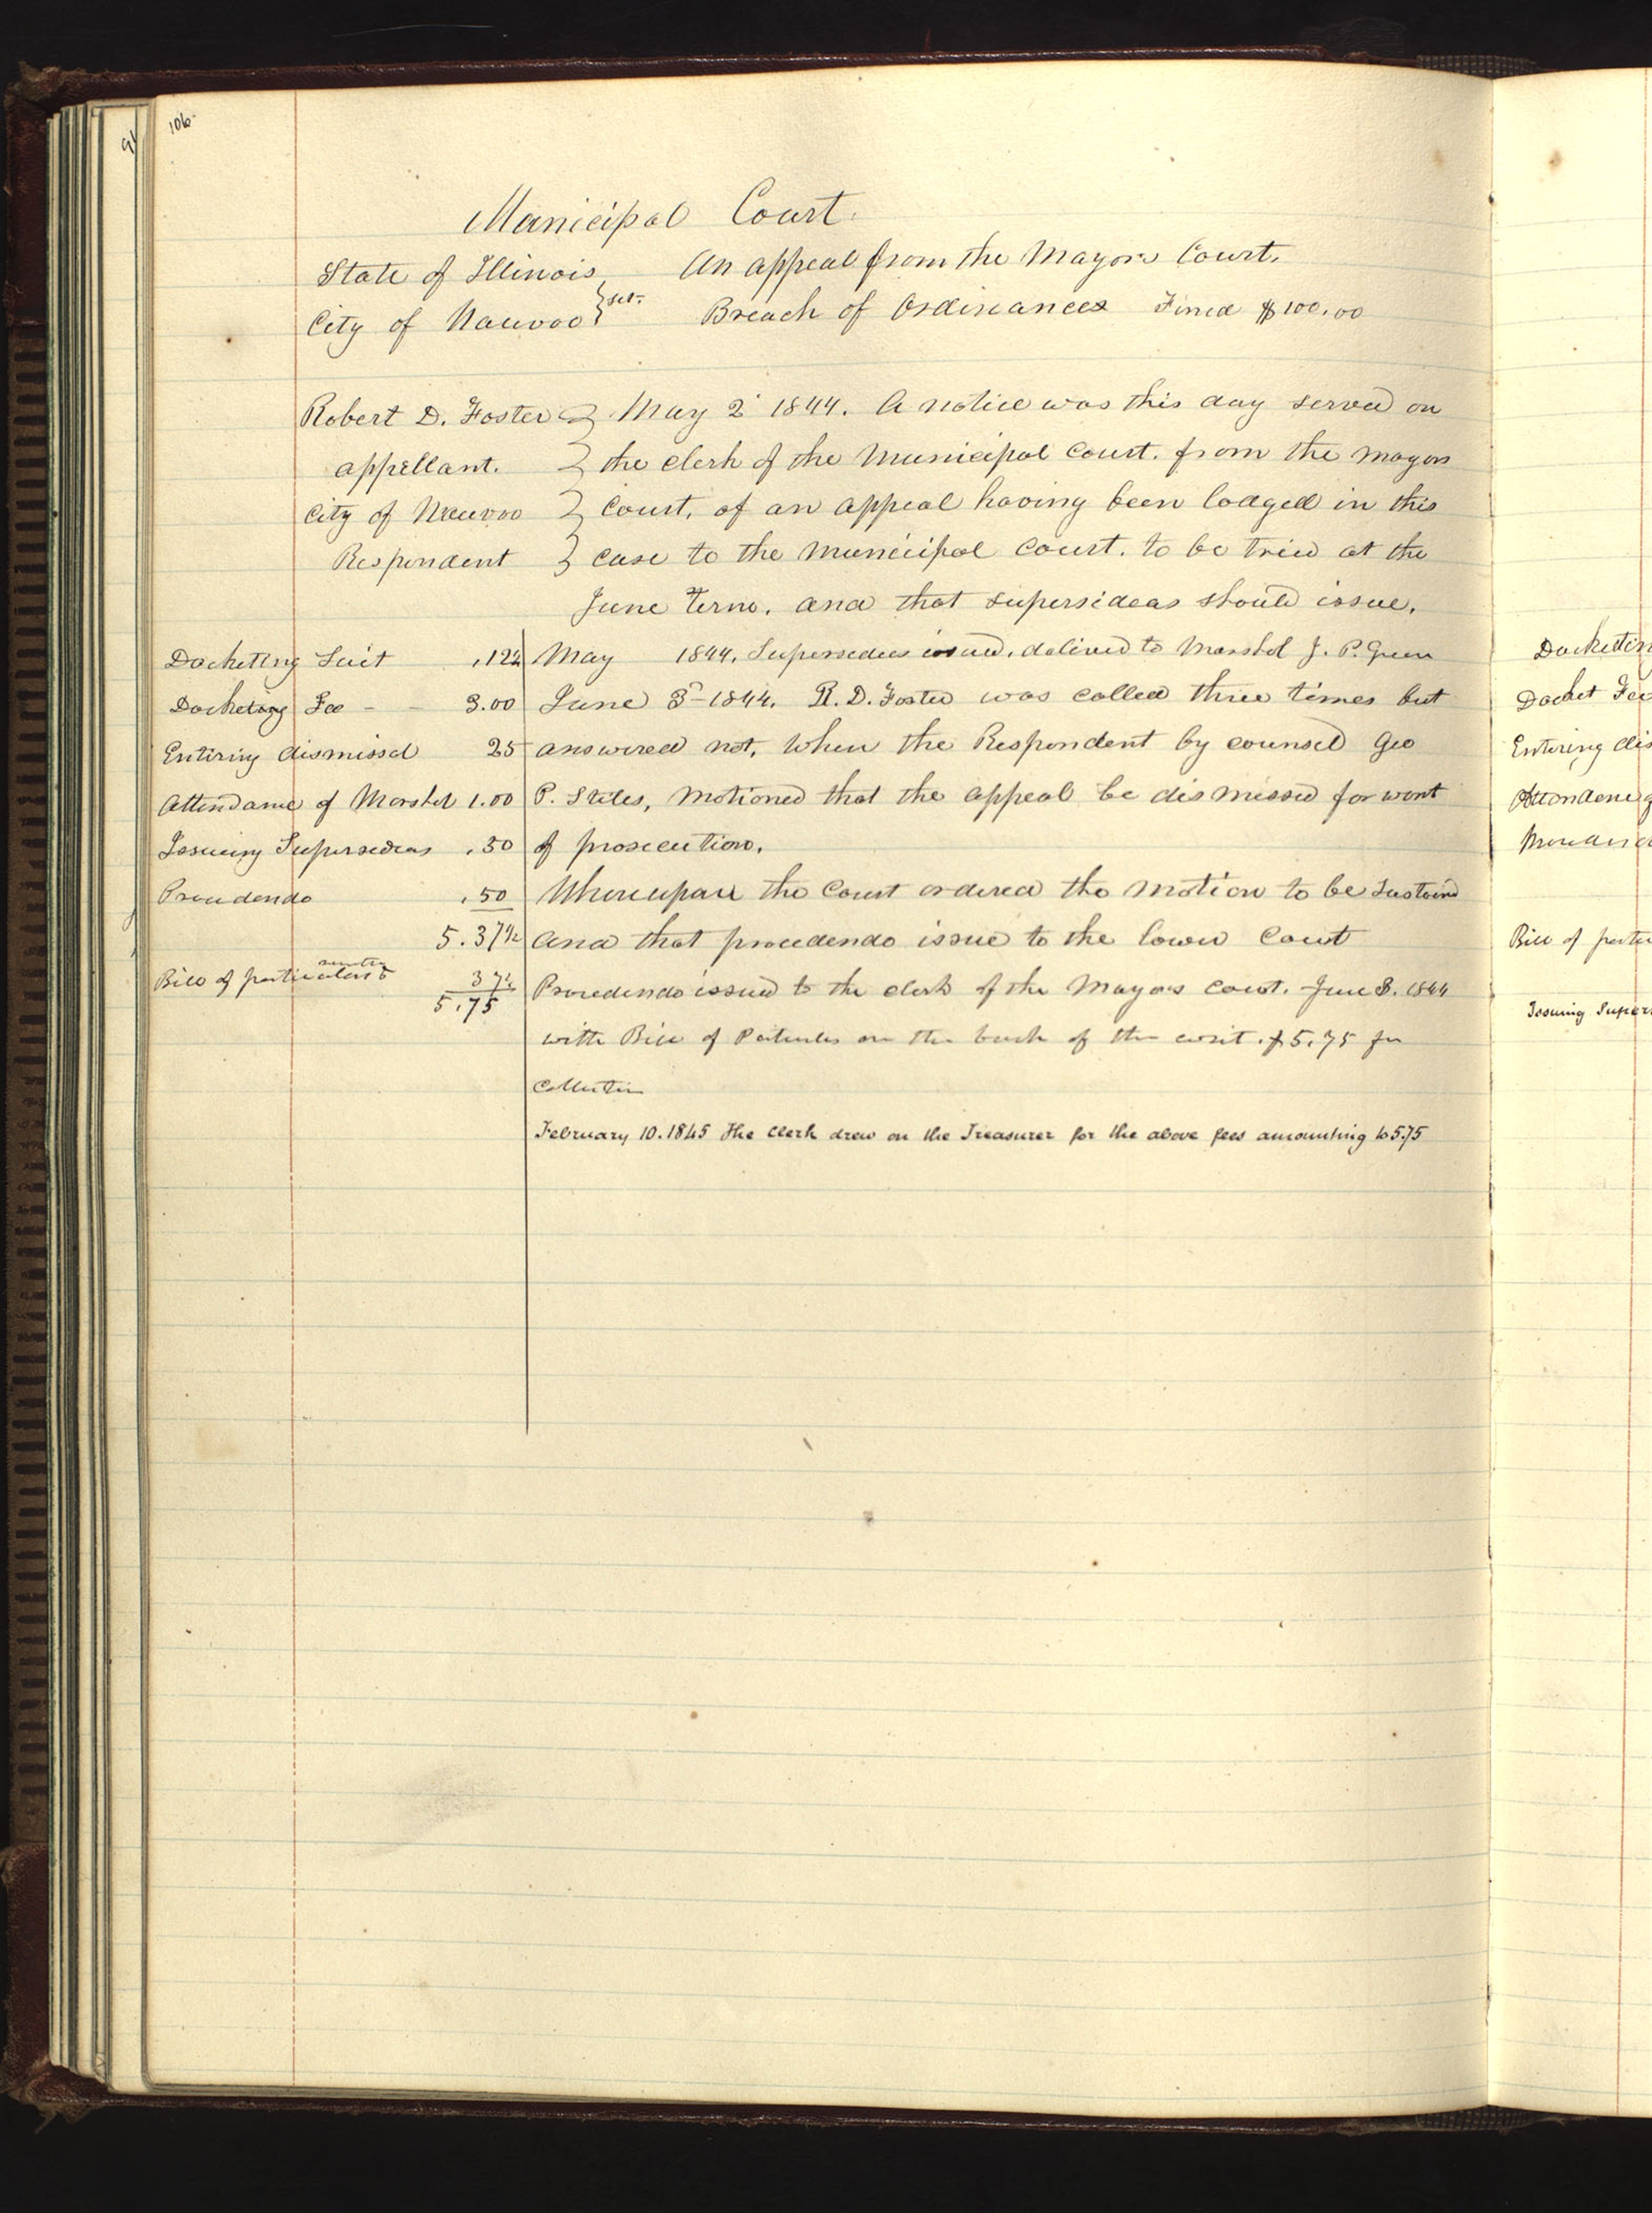 91
106
Municipal Court.
State of Illinois } sct. An appeal from the Mayors Court.
City of Nauvoo } Breach of Ordinances Fined $100.00
Robert D. Foster } May 2d 1844. A notice was this day served on
appellant. } the clerk of the Municipal Court. from the mayors
City of Nauvoo } Court, of an appeal having been lodged in this
Respondent } case to the Municipal Court. to be tried at the
June Term. and that supersideas should issue.
Docketing Suit .12½ May 1844. Supersedeas issued. delived to Marshal J. P. Green
Docketing Fee - - 3.00 June 3d- 1844. R. D. Foster was called three times but
Entiring dismissal 25 answered not, when the Respondent by counsel Geo
Attendance of Marshal 1.00 P. Stiles, motioned that the appeal be dismissed for want
Issuing Supersedeas .50 of prosecution.
Procedendo .50 Whereupon the Court ordered the motion to be Sustaind
5.37½ and that procedendo issue to the lower Court
Bill of particulars & 37½ Procedendo issued to the clerk of the Mayors Court. June 8. 1844
5.75
with Bill of Particulars on the back of the writ. $5.75 for
Collection
February 10. 1845 The Clerk drew on the Treasurer for the above fees amounting to 5.75
Docketin
Docket Fee
Entering dis
Attendance
Bill of partic
Issuing Super